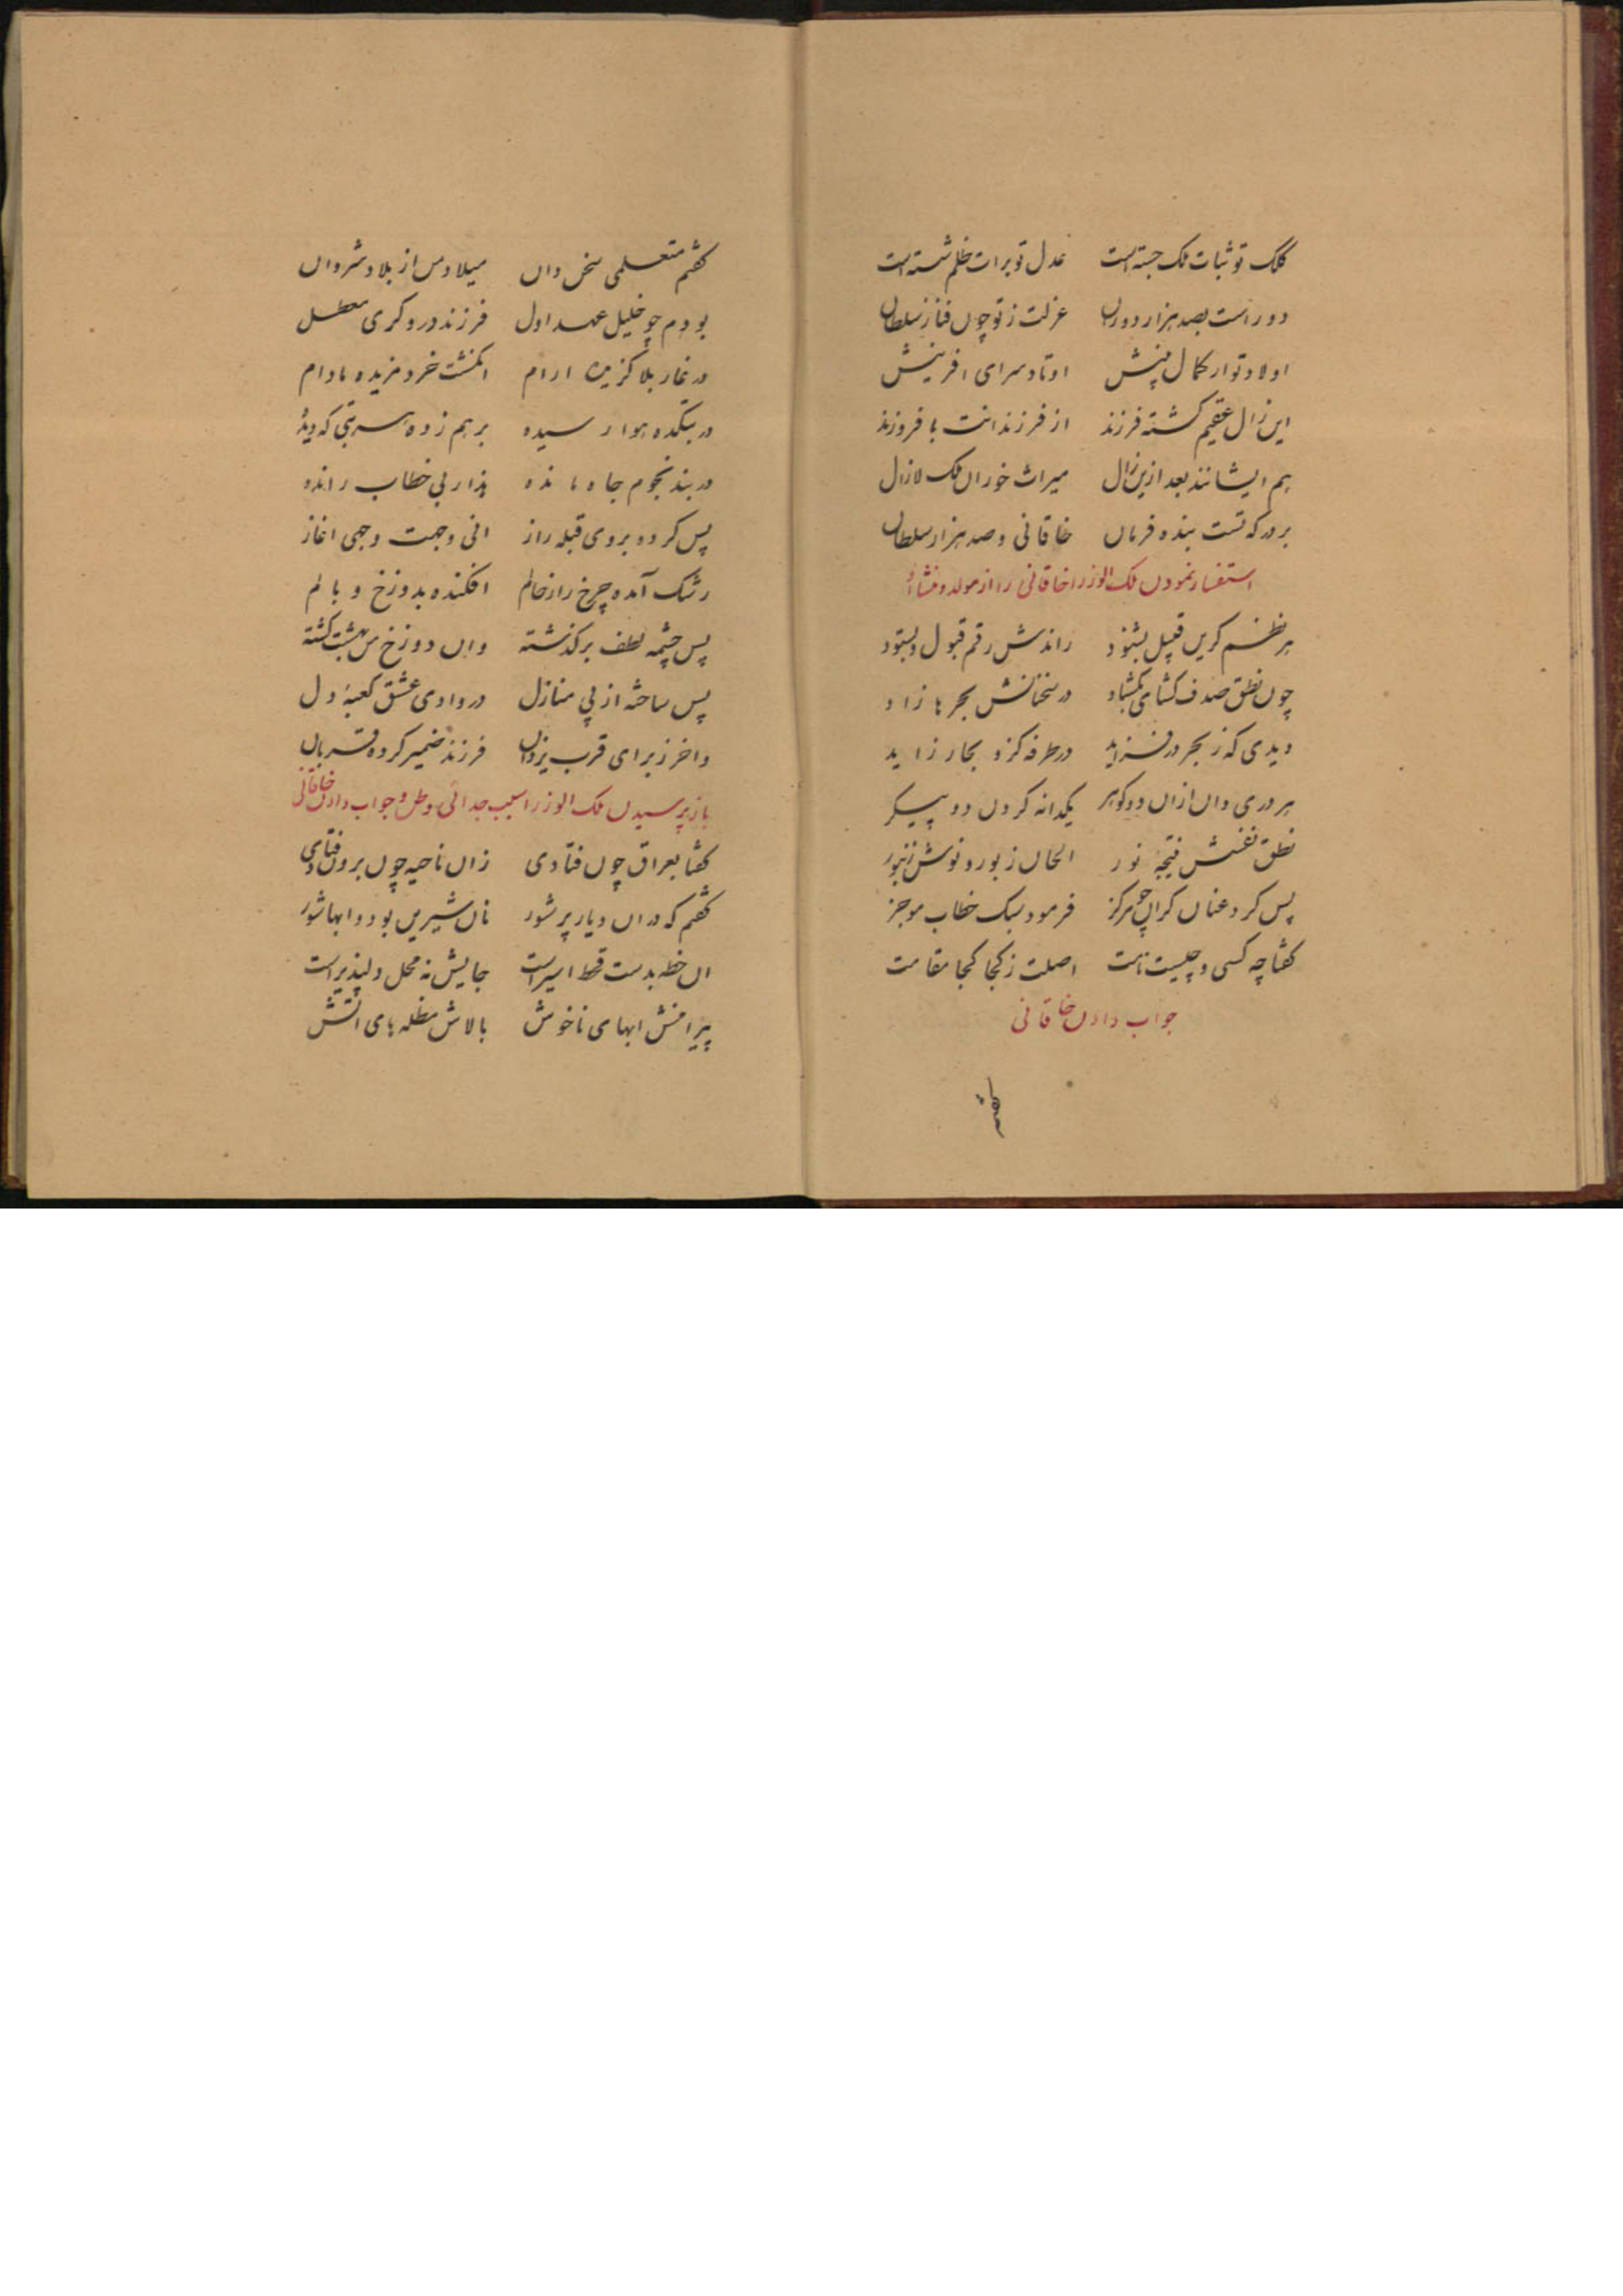 کلک تو ثبات ملک جسته است عدل تو برات ظلم شسته است
دور است بصد هزار دوران عزلت ز تو چون فنا ز سلطان
اولاد تو از کمال بینش اوتاد سرای افرینش
این زال عقیم کشته فرزند از فرزندانت با فروزند
هم ایشانند بعد ازین زال میراث خوران ملک لازال
بر درکه تست بنده فرمان خاقانی و صد هزار سلطان
استفسار نمودن ملک الوزرا خاقانی را از مولد و منشاء
هر نظم کزین قبیل بشنود راندش رقم قبول و بستود
چون نطق صدف کشای بکشاد در سخنانش بحرها زاد
دیدی که ز بحر در فزاید در طرفه کزو بحار زاید
هر دری دان ازان دو کوهر یکدانه کردن دو پیکر
نطق نفسش نتیجهٔ نور الحان زبور و نوش زنبور
پس کرد عنان کران چو مرکز فرمود سبک خطاب موجز
کفتا چه کسی و چیست نامت اصلت ز کجا کجا مقامت
جواب دادن خاقانی
کفتم
کفتم متعلمی سخن دان میلاد من از بلاد شروان
بودم چو خلیل عهد اول فرزند دروکری معطل
در غار بلا کزیده ارام انکشت خرد مزیده مادام
در بتکده هوا رسیده بر هم زده هر بتی که دیده
در بند نجوم جاه مانده هذا ربی خطاب رانده
پس کرده بروی قبله راز انی وجهت وجهی اغاز
رشک آمده چرخ را ز حالم افکنده بدوزخ وبالم
پس چشمه لطف برکذشته وان دوزخ من بهشت کشته
پس ساخته از پی منازل در وادی عشق کعبهٔ دل
واخر ز برای قرب یزدان فرزند ضمیر کرده قربان
باز پرسیدن ملک الوزرا سبب جدائی وطن و جواب دادن خاقانی
کفتا بعراق چون فتادی زان ناحیه چون برون فتادی
کفتم که دران دیار پر شور نان شیرین بود و ابها شور
ان خطه بدست قحط اسیر است جایش نه محل دلپذیر است
پیرامنش ابهای ناخوش بالاش مظله های اتش